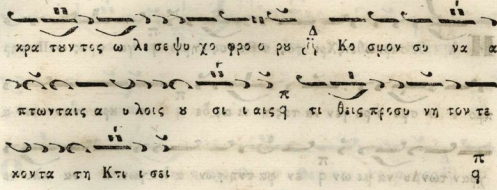 κρα τουν τος ω λε σε ψυ χο φρο ο ρυ Κο σμον συ να α
πτων ταις α υ λοις ου σι ι αις π q τι θεις προσυ νη τον τε
κον τα τη Κτι ι σει π q